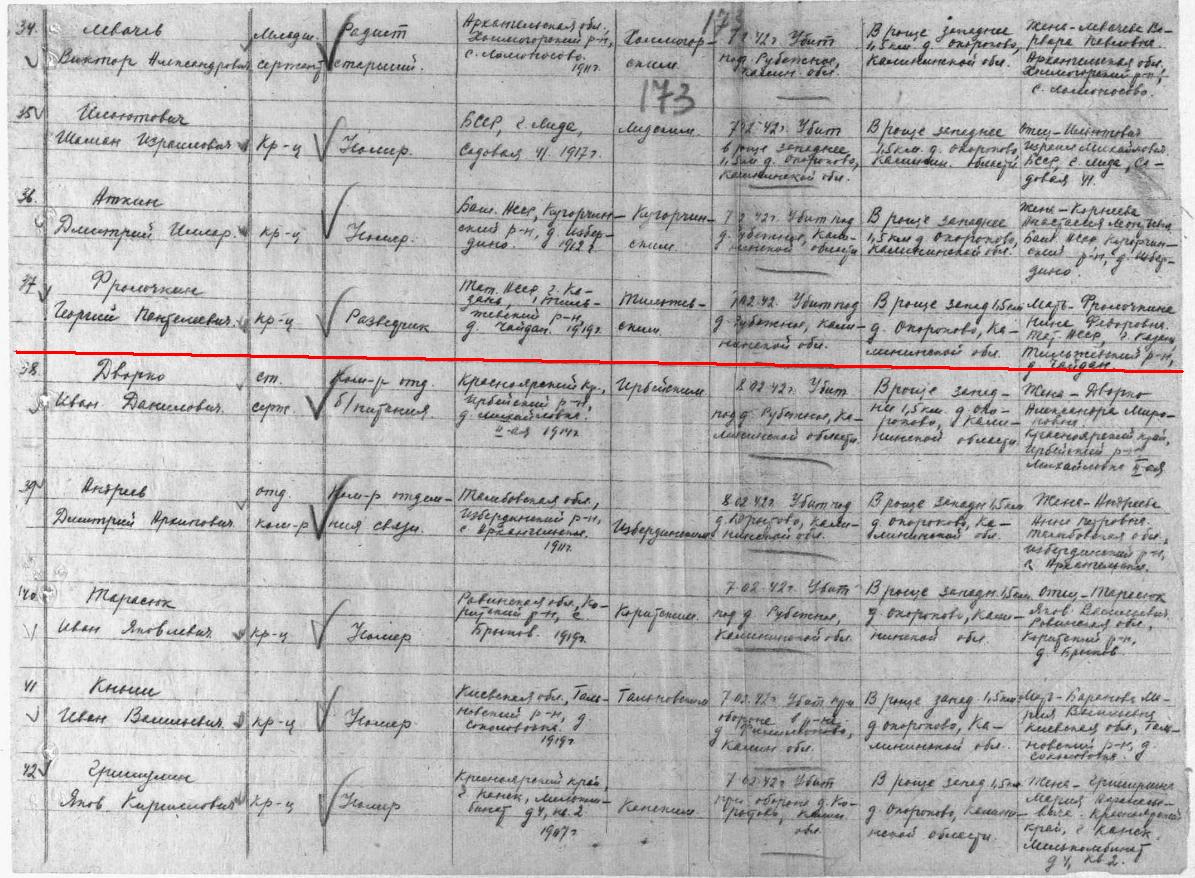 173
34. Левачев
Виктор Александрович
Младш. сержант
Радист старший.
Архангельская обл.
Холмогорский р-н,
с. Ломоносово.
1911г.
Холмогорским.
7.2.42г. Убит
под Рубежное,
Калин. обл.
В роще западнее
1,5км. д. Окороково,
Калининской обл.
Жена - Левачева Варвара Павловна.
Архангельская обл.
Холмогорский р-н,
с. Ломоносово.
173
35
Израилович
Кр-ц
Номер.
БССР, г. Лида,
Садовая 41. 1917г.
Лидским.
7.2.42г. Убит
в роще западнее
1,5км д. Окороково,
Калининской обл.
В роще западнее
1,5км. д. Окороково,
Калинин. области
Отец -
Израиль Михайлович
БССР, г. Лида, Садовая 41.
36. Аткин
Дмитрий
кр-ц
Номер.
Баш. АССР, Кугарчинский р-н, д.
1912г.
Кугарчинским.
7.2.42г. Убит под
д. Рубежное, Калининской области
В роще западнее
1,5км д. Окороково,
Калининской обл.
Жена - Корнеева
Анастасия
Баш. АССР Кугарчинский р-н, д.
37 Фролочкин
Георгий Пантелеевич.
кр-ц
Разведчик
Тат. АССР г. Казань,
р-н,
д. Чайдан. 1919г.
7.02.42. Убит под
д. Рубежное, Калининской обл.
В роще запад 1,5км
д. Окороково, Калининской обл.
Мать - Фролочкина
Нина Федоровна.
Тат. АССР, г. Казань
р-н,
д. Чайдан.
38. Дворко
Иван Данилович.
ст. серж.
Ком-р отд.
б/питания
Красноярский кр.,
Ирбейский р-н,
д. Михайловка
II-ая 1914г.
Ирбейским
8.02.42г. Убит
под д. Рубежное, Калининской области.
В роще западнее 1,5км. д. Окороково, Калининской области.
Жена - Дворко
Александра Мироновна.
Красноярский край,
Ирбейский р-н
Михайловка II-ая
39 Андреев
Дмитрий Архипович.
отд. ком-р
Ком-р отделения связи.
Тамбовская обл.,
Избердинский р-н,
с. Архангельское.
1911г.
Избердинским
8.02.42г. Убит под
д. Корытово, Калининской обл.
В роще западн 1,5км
д. Окороково, Калининской обл.
Жена - Андреева
Анна Петровна.
Тамбовская обл.,
Избердинский р-н,
с. Архангельское.
40. Тарасюк
Иван Яковлевич
кр-ц
Номер
Ровенская обл., Корецкий р-н, с.
Брыков. 1919г.
Корецким.
7.02.42г. Убит
под д. Рубежное,
Калининской обл.
В роще западн. 1,5км
д. Окороково, Калининской обл.
Отец - Тарасюк
Яков Васильевич
Ровенская обл.,
Корецкий р-н,
д. Брыков
41 Кныш
Иван Васильевич
кр-ц
Номер.
Киевская обл., Тальновский р-н, д
1919г
Тальновским
7.02.42г. Убит при
обороне в р-не
д. Филимоново,
Калин обл.
В роще запад 1,5км
д. Окороково, Калининской обл.
Мать - Баранова Мария Васильевна
Киевская обл, Тальновский р-н, д
42
Яков Кириллович
кр-ц
Номер
Красноярский край,
г. Канск, Мелькомбинат д 4, кв. 2
1907г.
Канским.
7.02.42г. Убит
при обороне д. Корытово, Калин
обл.
В роще запад 1,5км
д. Окороково, Калининской области.
Жена -
Мария
Красноярский
край, г. Канск.
Мелькомбинат
д 4, кв 2.